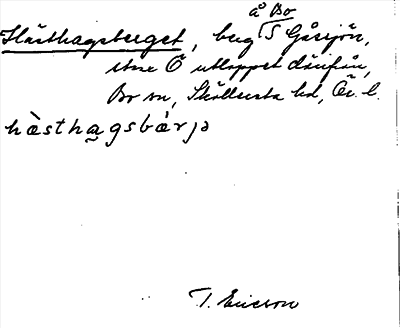 å Bo
Hästhagsberget, berg S Gåsijön,
strax Ö utloppet därifrån,
Bo sn, Sköllersta hd, Ör. l.
hàsthagsbárjə
T. Ericson